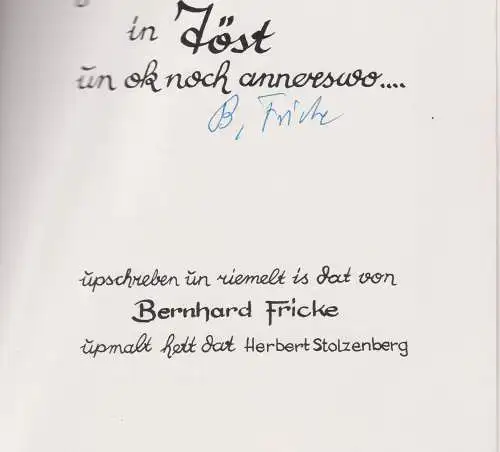 in Jöst
ŭn ok noch annerswo....
B. Fricke
ŭpschreben ŭn riemelt is dat von
Bernhard Fricke
ŭpmalt hett dat Herbert Stolzenberg